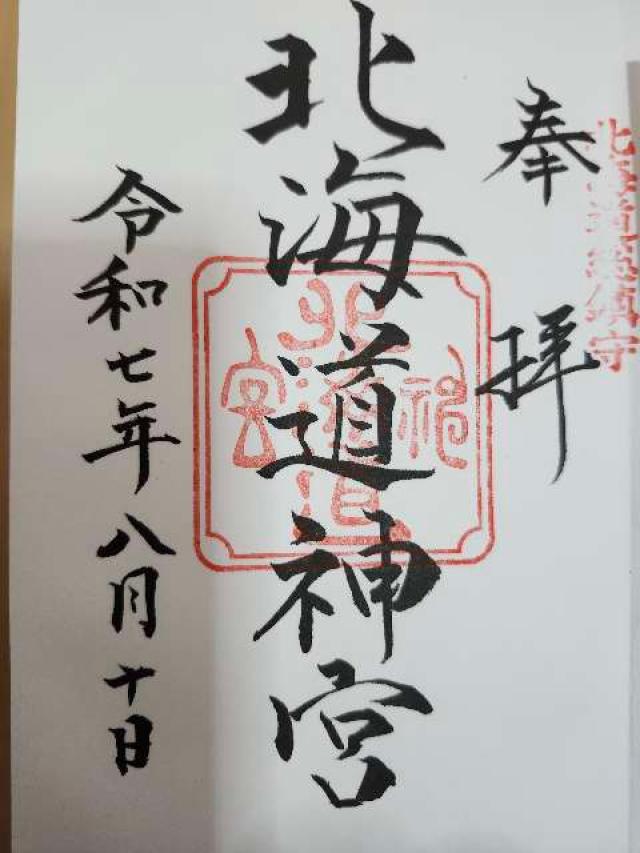 北海道総鎮守
奉拝
北海道神宮
令和七年八月十日